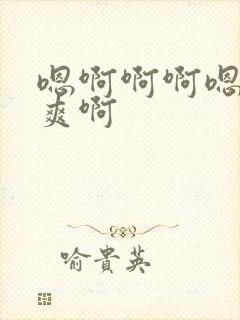 嗯啊啊啊嗯
爽啊
喻貴英